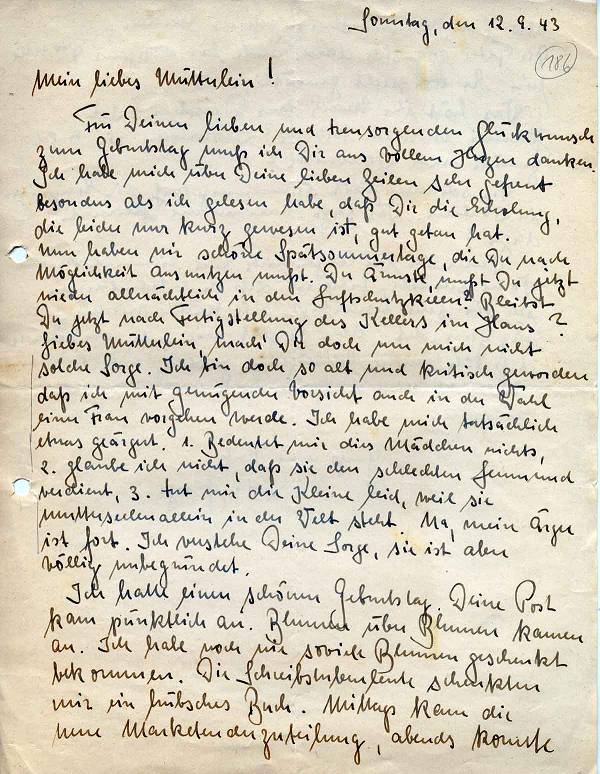 Sonntag, den 12.9.43
186
Mein liebes Mütterlein!
Für Deinen lieben und treusorgenden Glückwunsch
zum Geburtstag muß ich Dir aus vollem Herzen danken.
Ich habe mich über Deine lieben Zeilen sehr gefreut
besonders als ich gelesen habe, daß Dir die Erholung,
die leider nur kurz gewesen ist, gut getan hat.
Nun haben wir schöne Spätsommertage, die Du nach
Möglichkeit ausnutzen mußt. Du Ärmste, mußt Du jetzt
wieder allnächtlich in den Luftschutzkeller? Bleibst
Du jetzt nach Fertigstellung des Kellers im Haus?
Liebes Mütterlein, mach' Dir doch um mich nicht
solche Sorge. Ich bin doch so alt und kritisch geworden
daß ich mit genügender Vorsicht auch in der Wahl
einer Frau vorgehen werde. Ich habe mich tatsächlich
etwas geärgert. 1. Bedeutet mir dies Mädchen nichts,
2. glaube ich nicht, daß sie den schlechten Leumund
verdient, 3. tut mir die Kleine leid, weil sie
mutterseelenallein in der Welt steht. Na, mein Ärger
ist fort. Ich verstehe Deine Sorge, sie ist aber
völlig unbegründet.
Ich hatte einen schönen Geburtstag. Deine Post
kam pünktlich an. Blumen über Blumen kamen
an. Ich habe noch nie soviele Blumen geschenkt
bekommen. Die Schreibstubenleute schenkten
mir ein hübsches Buch. Mittags kam die
neue Marketenderzuteilung, abends konnte